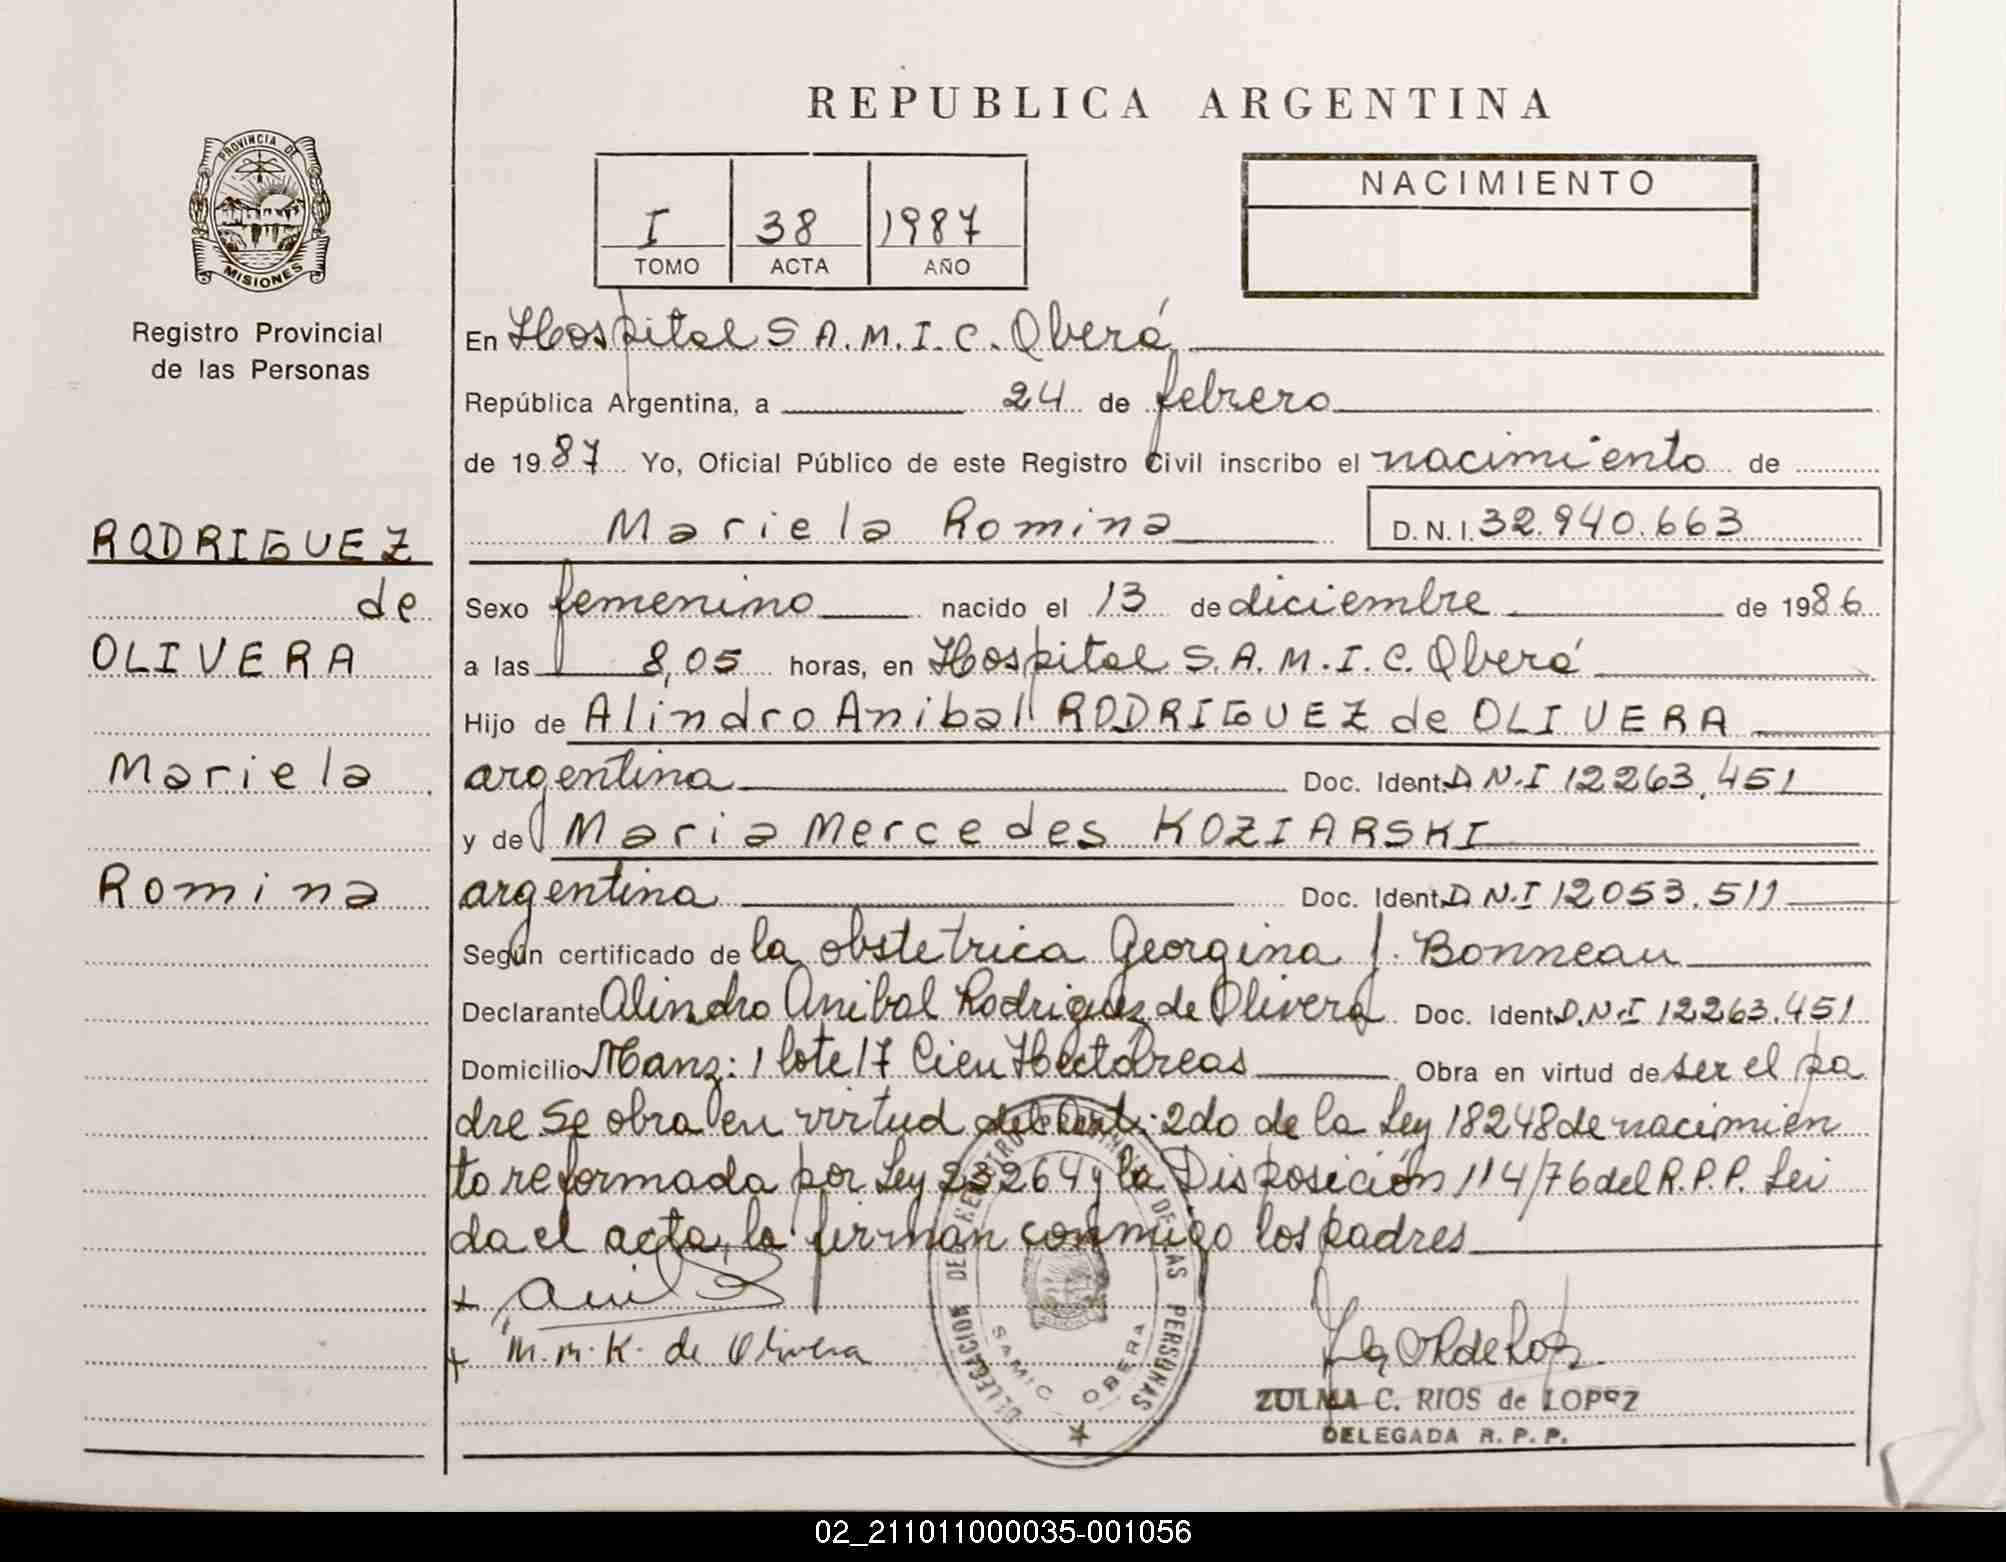 REPUBLICA ARGENTINA
PROVINCIA DE
MISIONES
Registro Provincial
de las Personas
I 38 1987
TOMO ACTA AÑO
NACIMIENTO
En Hospital S.A.M.I.C. Oberá
República Argentina, a 24 de febrero
de 1987 Yo, Oficial Público de este Registro Civil inscribo el nacimiento de
Mariela Romina D.N.I. 32.940.663
RODRIGUEZ
de
OLIVERA
Mariela
Romina
Sexo femenino nacido el 13 de diciembre de 1986
a las 8,05 horas, en Hospital S.A.M.I.C. Oberá
Hijo de Alindro Anibal RODRIGUEZ de OLIVERA
argentina Doc. Ident. D.N.I 12263.451
y de Maria Mercedes KOZIARSKI
argentina Doc. Ident. D.N.I 12053.511
Según certificado de la obstetrica Georgina J. Bonneau
Declarante Alindro Anibal Rodriguez de Olivera Doc. Ident. D.N.I 12263.451
Domicilio Manz: 1 lote 17 Cien Hectáreas Obra en virtud de ser el pa
dre Se obra en virtud del Art. 2do de la Ley 18248 de nacimien
to reformada por Ley 23264 y la Disposición 114/76 del R.P.P. Lei
da el acta, la firman conmigo los padres
M.M.K. de Olivera
DELEGACION DEL REGISTRO PROVINCIAL DE LAS PERSONAS
SAMIC OBERA
ZULMA C. RIOS de LOPEZ
DELEGADA R.P.P.
02_211011000035-001056